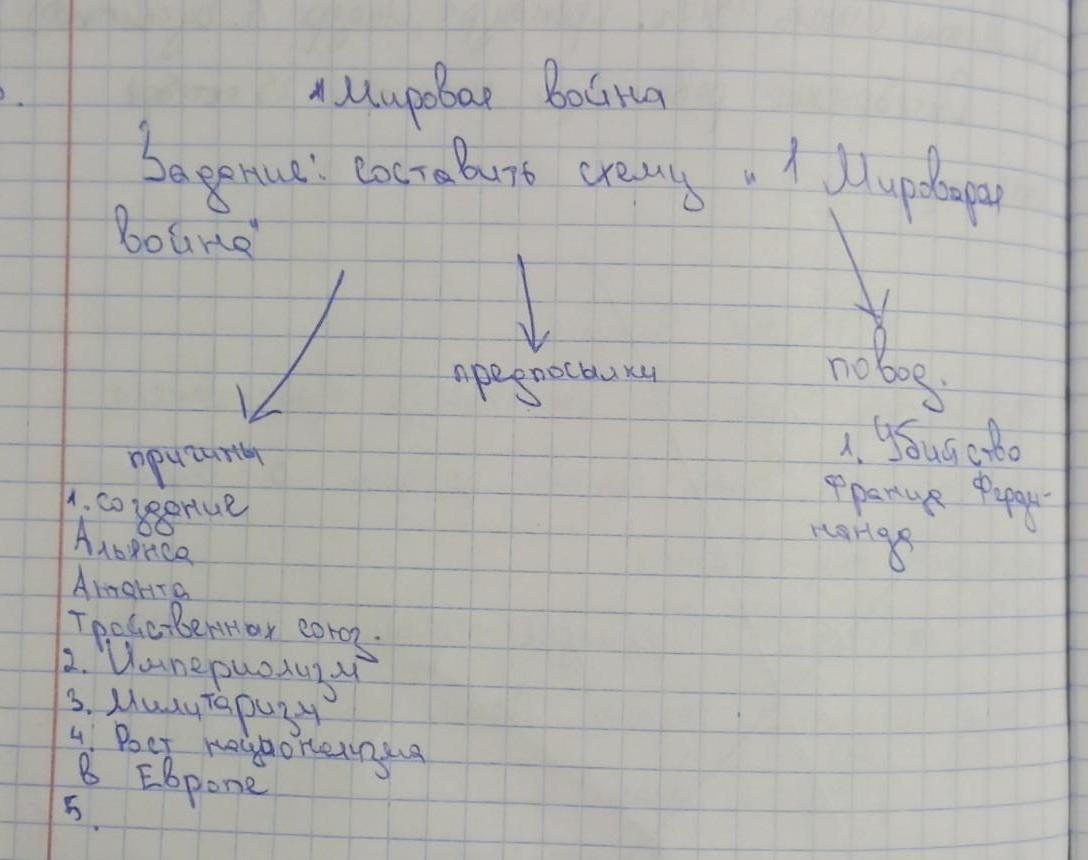 1 Мировая война
Задание: составить схему " 1 Мироварая
война"
предпосылки
повод.
причины
1. создание
Альянса
Антанта
Тройственных союз.
2. Империолизм
3. Милитаризм
4. Рост национализма
в Европе
5.
1. Убийство
Франца Ферди-
нанда